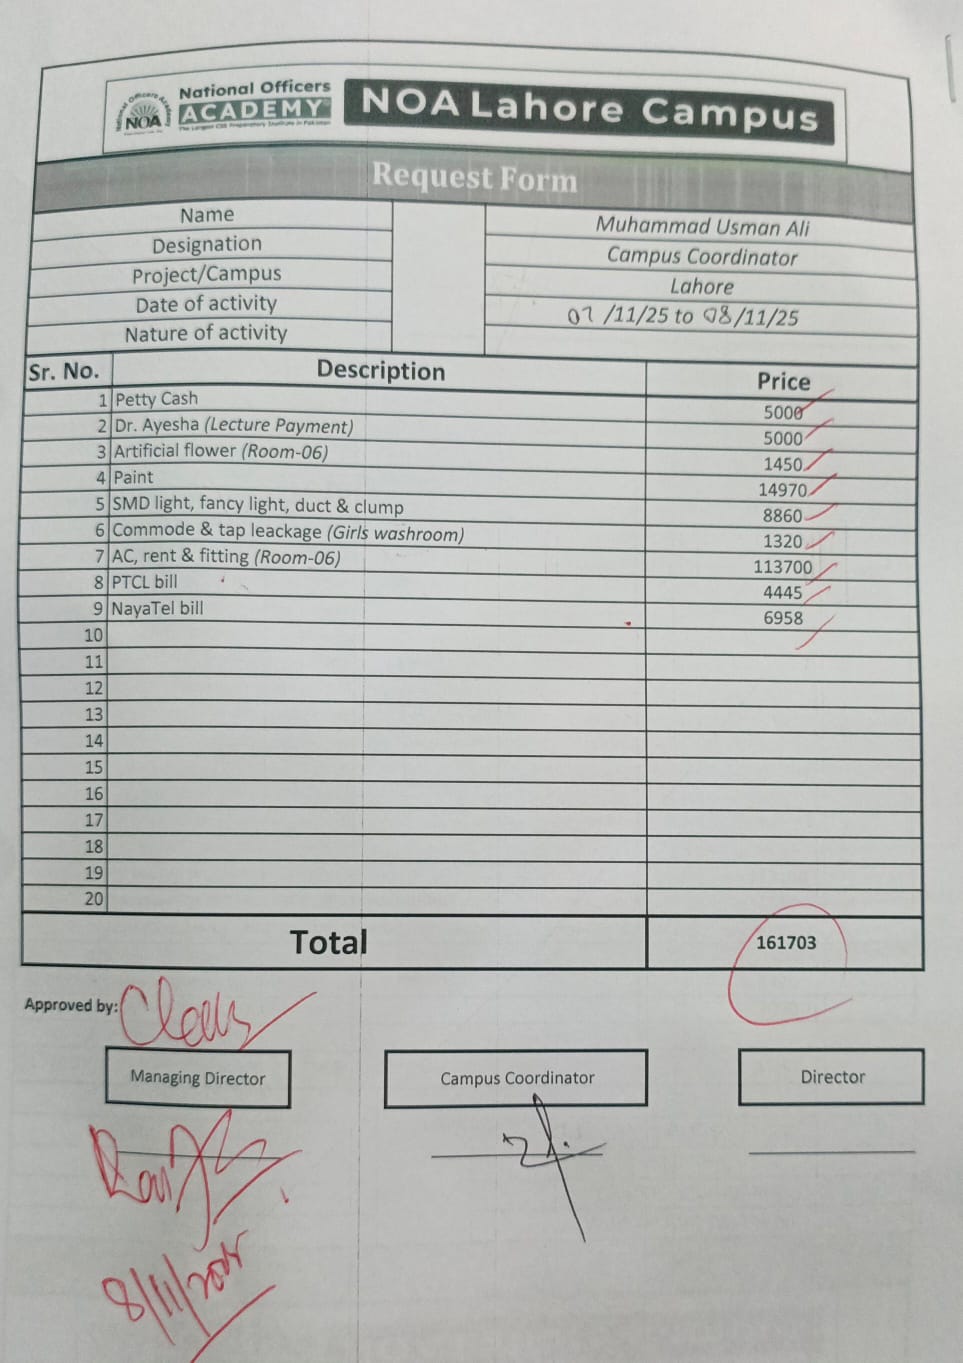 National Officers
ACADEMY
The Largest CSS Preparatory Institute in Pakistan
National Officers Academy
NOA
NOA Lahore Campus
Request Form
Name Muhammad Usman Ali
Designation Campus Coordinator
Project/Campus Lahore
Date of activity 07/11/25 to 08/11/25
Nature of activity
Sr. No. Description Price
1 Petty Cash 5000
2 Dr. Ayesha (Lecture Payment) 5000
3 Artificial flower (Room-06) 1450
4 Paint 14970
5 SMD light, fancy light, duct & clump 8860
6 Commode & tap leackage (Girls washroom) 1320
7 AC, rent & fitting (Room-06) 113700
8 PTCL bill 4445
9 NayaTel bill 6958
10
11
12
13
14
15
16
17
18
19
20
Total 161703
Approved by:
Managing Director Campus Coordinator Director
8/11/2025